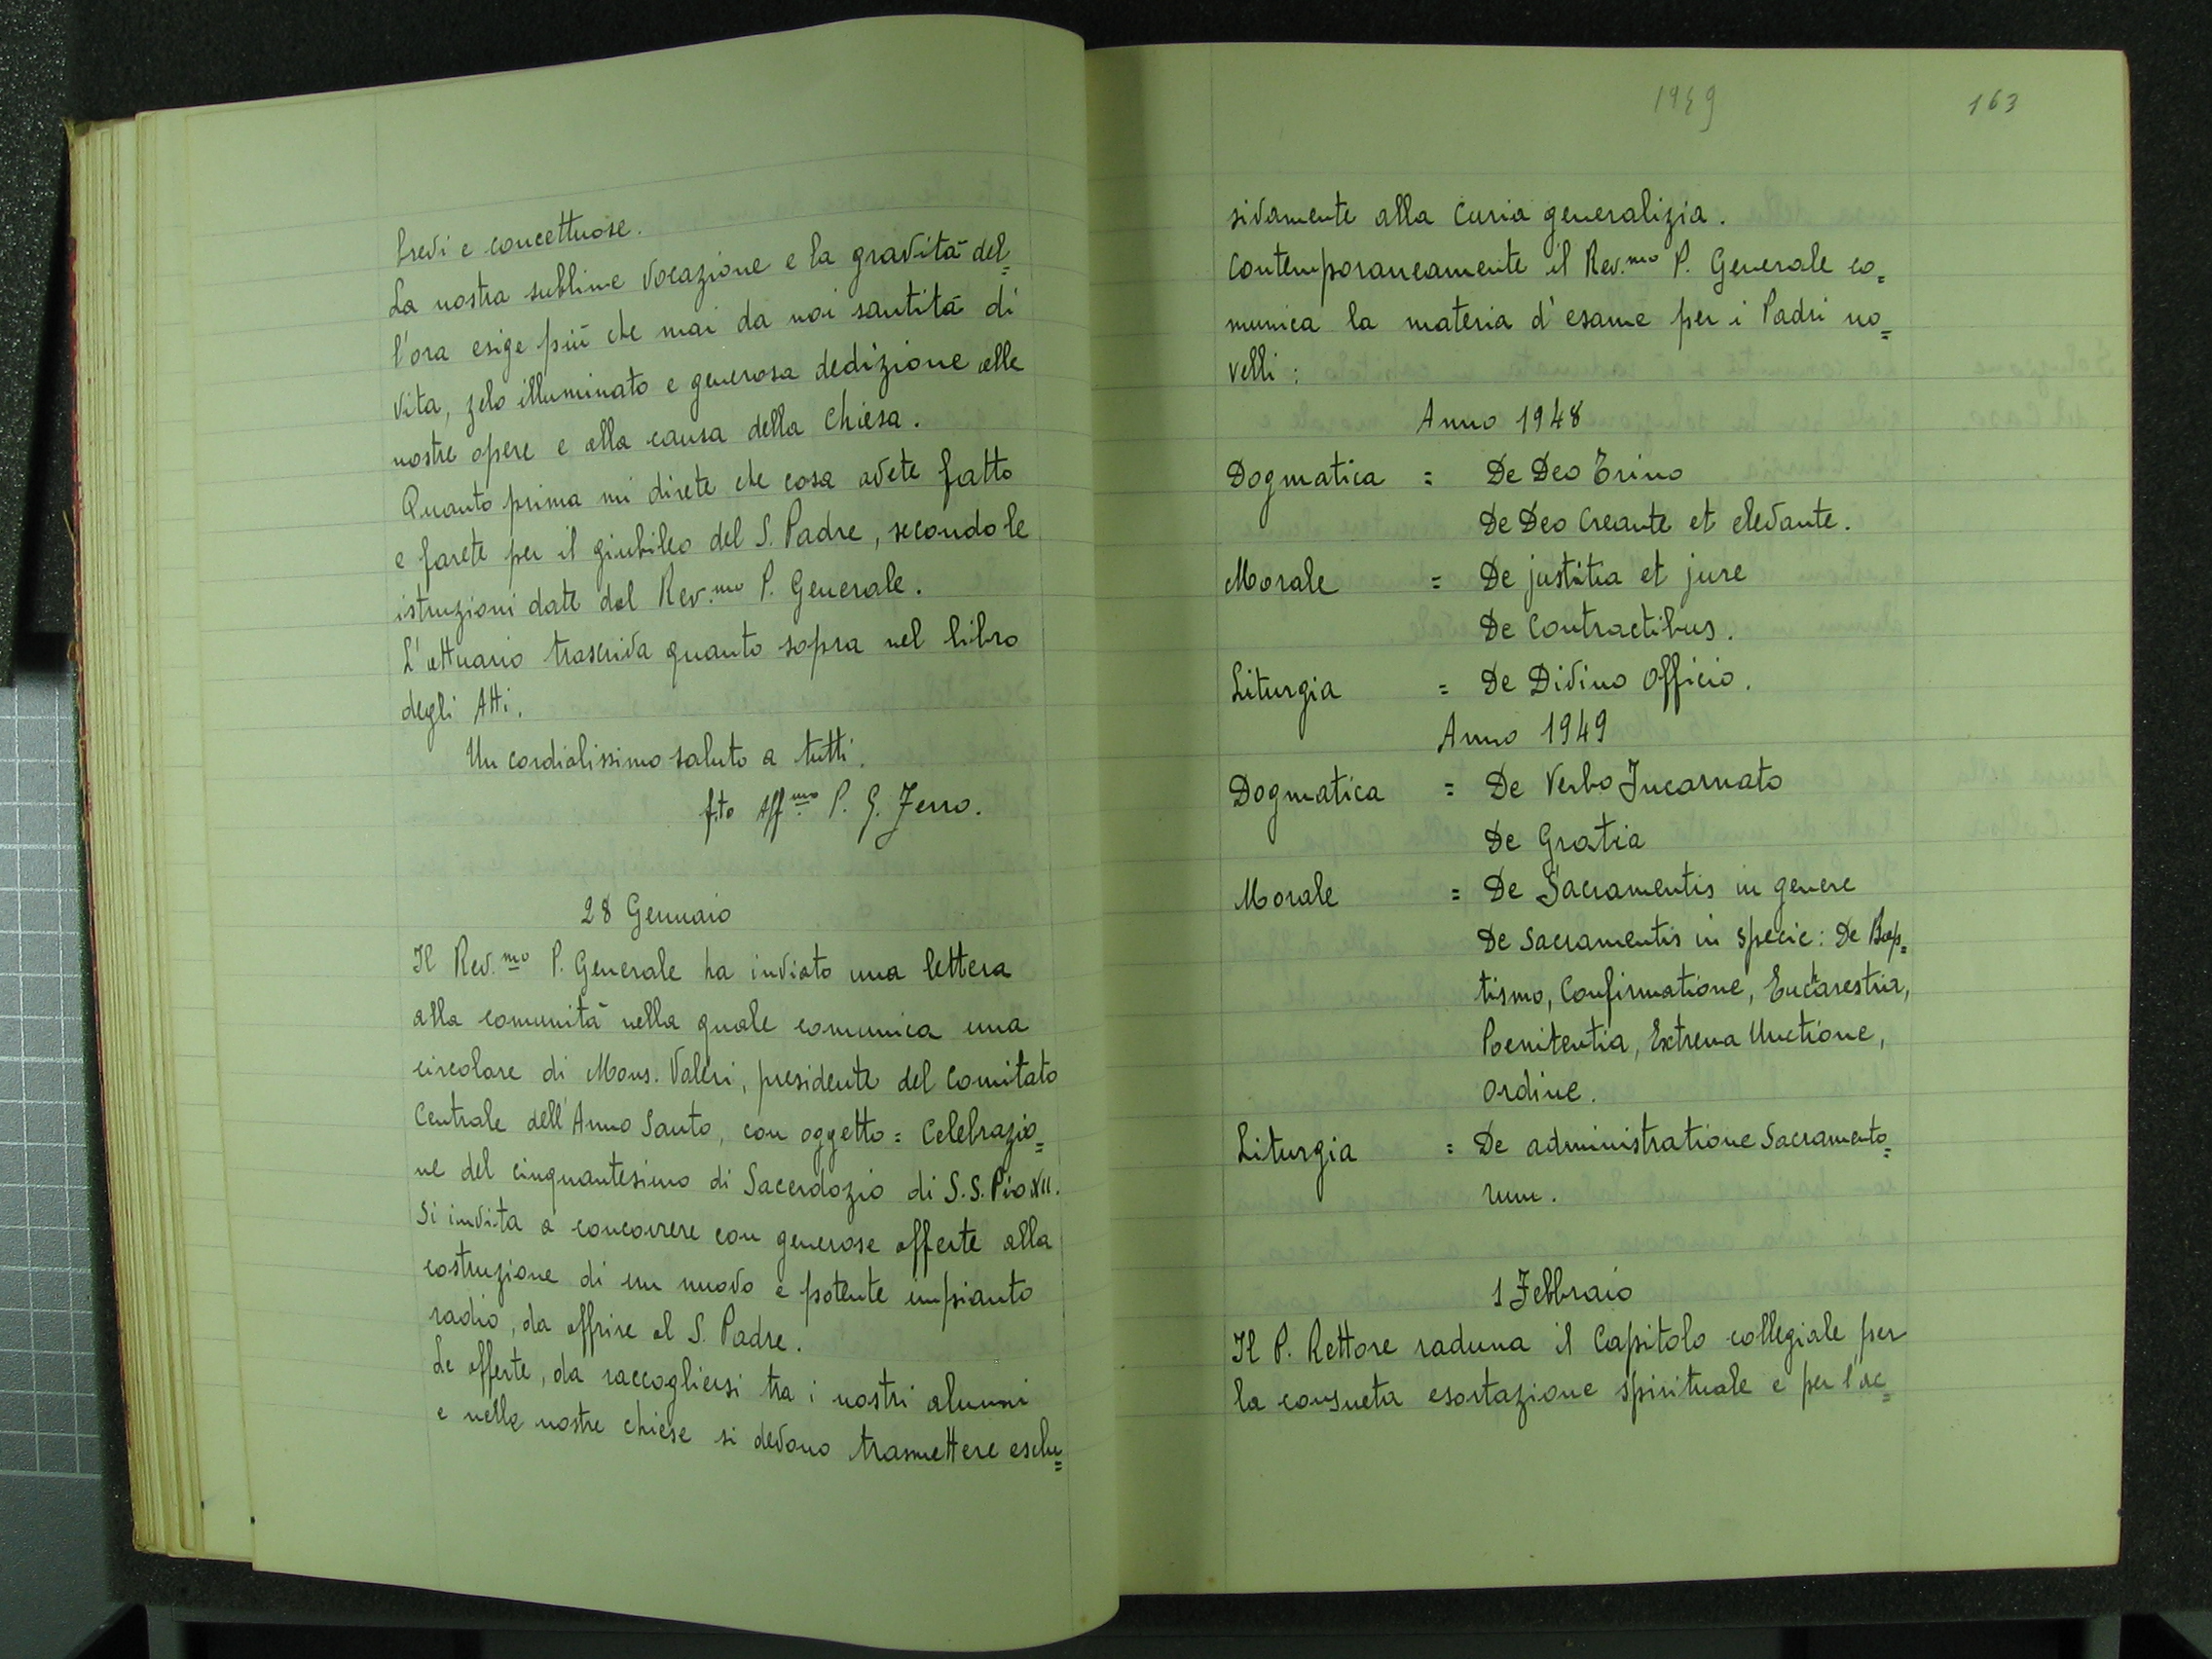 brevi e concettuose.
La nostra sublime vocazione e la gravità del=
l'ora esige più che mai da noi santità di
vita, zelo illuminato e generosa dedizione alle
nostre opere e alla causa della Chiesa.
Quanto prima mi direte che cosa avete fatto
e farete per il giubileo del S. Padre, secondo le
istruzioni date dal Rev.mo P. Generale.
L'attuario trascriva quanto sopra nel libro
degli Atti.
Un cordialissimo saluto a tutti.
f.to Aff.mo P. G. Ferro.
28 Gennaio
Il Rev.mo P. Generale ha inviato una lettera
alla comunità nella quale comunica una
circolare di Mons. Valeri, presidente del Comitato
Centrale dell'Anno Santo, con oggetto = Celebrazio=
ne del cinquantesimo di Sacerdozio di S.S. Pio XII.
Si invita a concorrere con generose offerte alla
costruzione di un nuovo e potente impianto
radio, da offrire al S. Padre.
Le offerte, da raccogliersi tra i nostri alunni
e nelle nostre chiese si devono trasmettere esclu=
1949
163
sivamente alla Curia generalizia.
Contemporaneamente il Rev.mo P. Generale co=
munica la materia d'esame per i Padri no=
velli:
Anno 1948
Dogmatica = De Deo Trino
De Deo Creante et elevante.
Morale = De justitia et jure
De Contractibus.
Liturgia = De Divino Officio.
Anno 1949
Dogmatica = De Verbo Incarnato
De Gratia
Morale = De Sacramentis in genere
De Sacramentis in specie: De Bap=
tismo, Confirmatione, Eucharestia,
Poenitentia, Extrema Unctione,
Ordine.
Liturgia = De administratione Sacramento=
rum.
1 Febbraio
Il P. Rettore raduna il Capitolo collegiale per
la consueta esortazione spirituale e per l'ac=